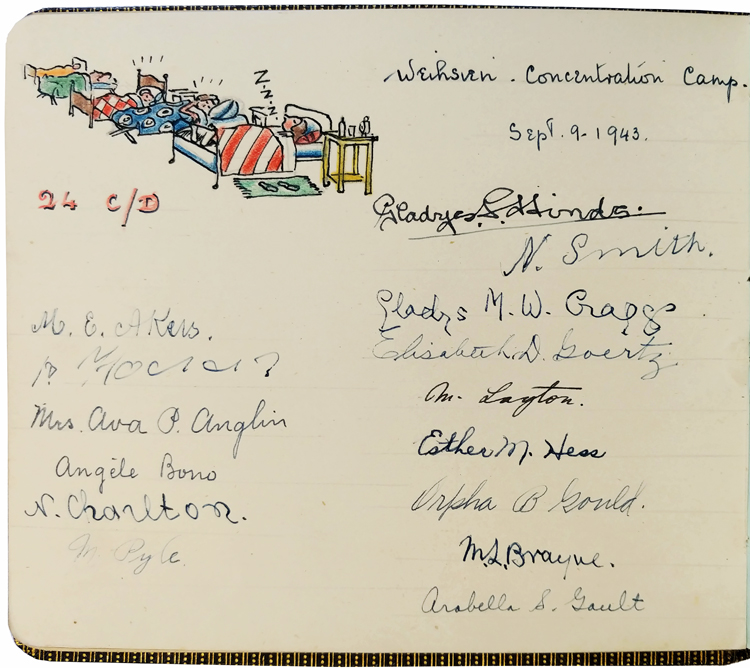 Z-Z-Z-Z
Weihsien. Concentration Camp.
Sept. 9-1943.
24 C/D
Gladys. S. Hinds.
N. Smith.
Gladys M. W. Craggs
Elisabeth D. Goertz
M. Layton.
Esther M. Hess
Orpha B Gould.
M.L. Brayne.
Arabella S. Gault
M. E. Akers.
Mrs. Ava P. Anglin
Angèle Bono
N. Charlton.
M. Pyle